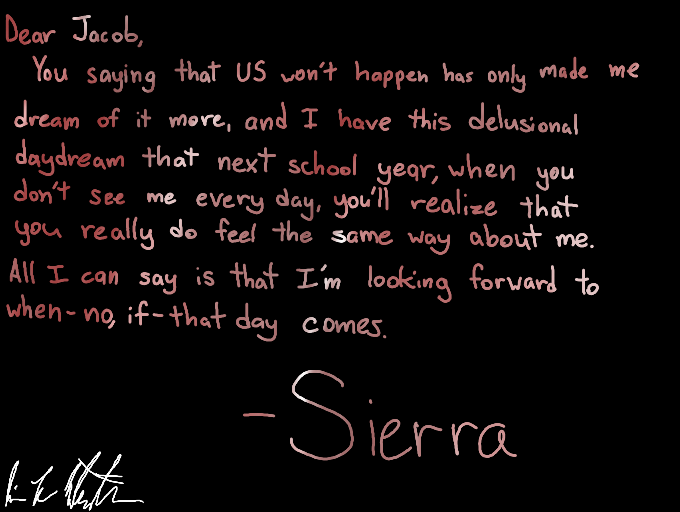 Dear Jacob,
You saying that US won't happen has only made me
dream of it more, and I have this delusional
daydream that next school year, when you
don't see me every day, you'll realize that
you really do feel the same way about me.
All I can say is that I'm looking forward to
when-no, if-that day comes.
-Sierra